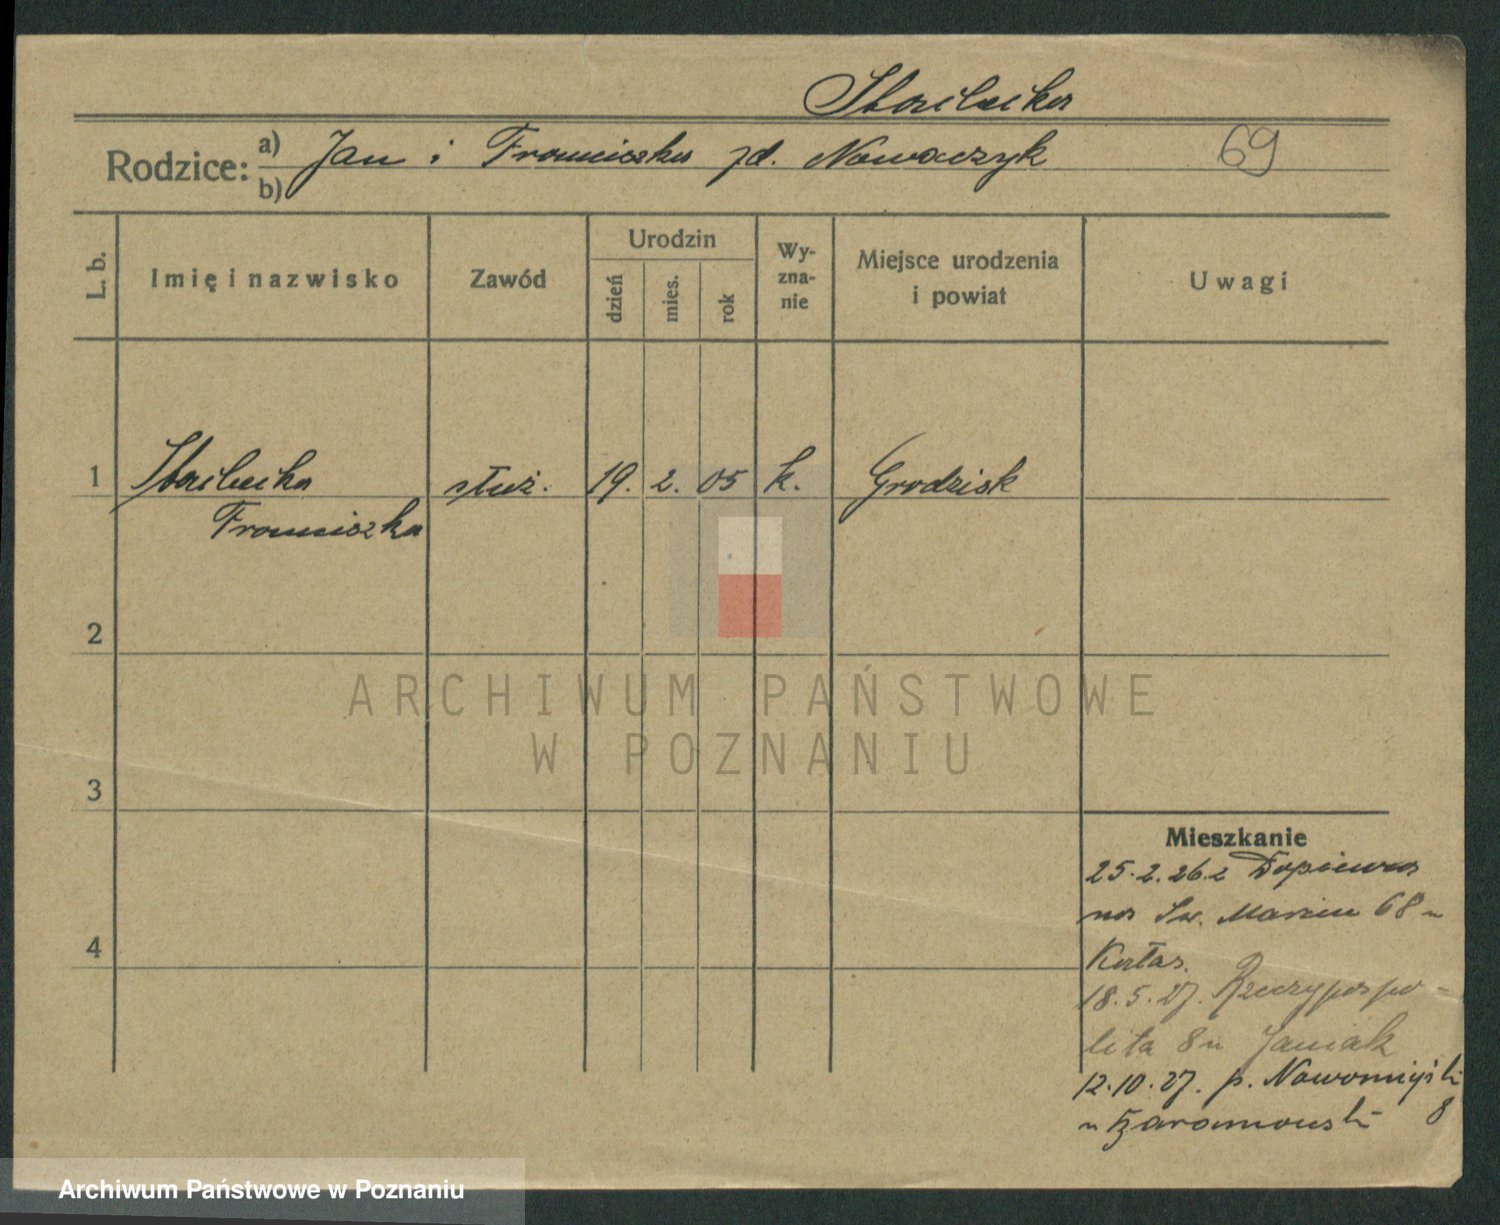 Rodzice: a) Jan i Franciszka zd. Nowaczyk 69
b)
L. b.
Imię i nazwisko
Zawód
Urodzin
dzień
mies.
rok
Wy-
zna-
nie
Miejsce urodzenia
i powiat
Uwagi
1 służ. 19. 2. 05 k. Grodzisk
Franciszka
2
ARCHIWUM PAŃSTWOWE
W POZNANIU
3
Mieszkanie
25.2.26. z Dopiewa
na Św. Marcin 68 u
4
18.5.27. Rzeczypospo-
lita 8 u Janiak
12.10.27. p. Nowomiejski
8
Archiwum Państwowe w Poznaniu